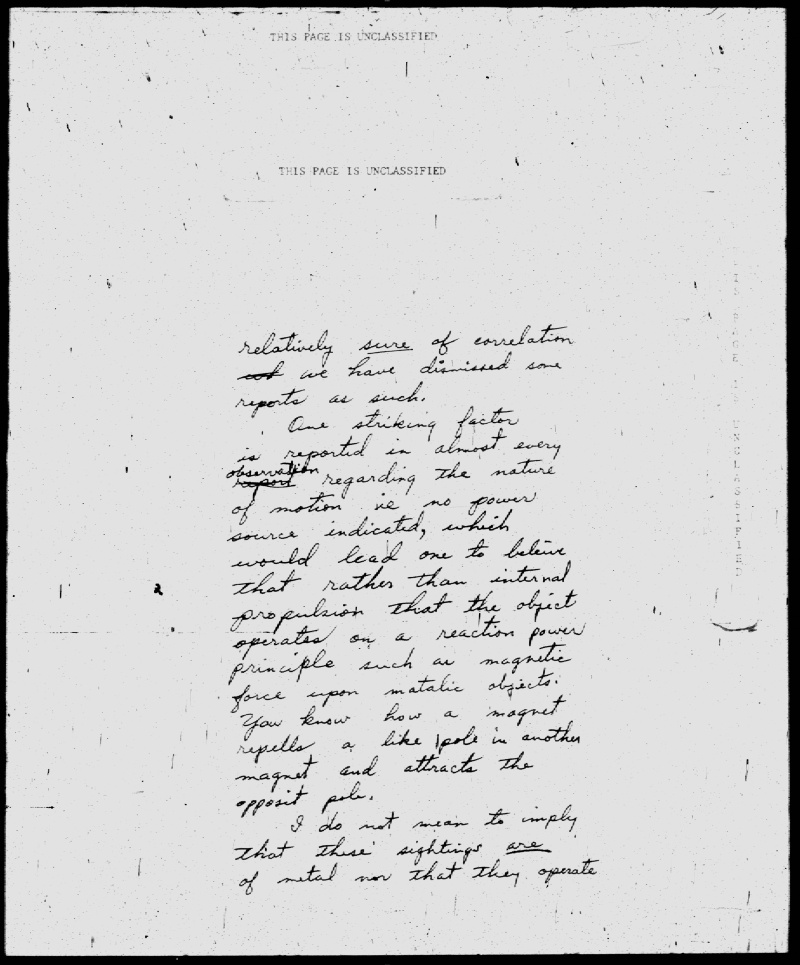 THIS PAGE IS UNCLASSIFIED
THIS PAGE IS UNCLASSIFIED
relatively sure of correlation
we have dismissed some
reports as such.
One striking factor
is reported in almost every
observation
report regarding the nature
of motion ie no power
source indicated, which
would lead one to believe
that rather than internal
propulsion that the object
operates on a reaction power
principle such as magnetic
force upon matalic objects.
You know how a magnet
repells a like pole in another
magnet and attracts the
opposit pole.
I do not mean to imply
that these sightings are
of metal nor that they operate